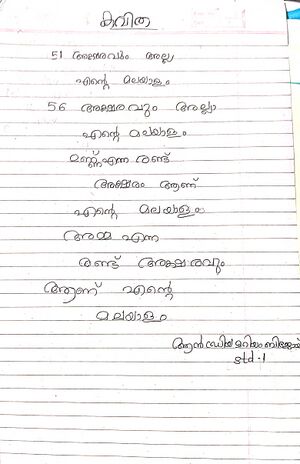 കവിത
51 അക്ഷരവും അല്ല
എന്റെ മലയാളം
56 അക്ഷരവും അല്ലാ
എന്റെ മലയാളം
മണ്ണ് എന്ന രണ്ട്
അക്ഷരം ആണ്
എന്റെ മലയാളം
അമ്മ എന്ന
രണ്ട് അക്ഷരവും
ആണ് എന്റെ
മലയാളം
ആൻഡ്രിയ മറിയം
std - 1